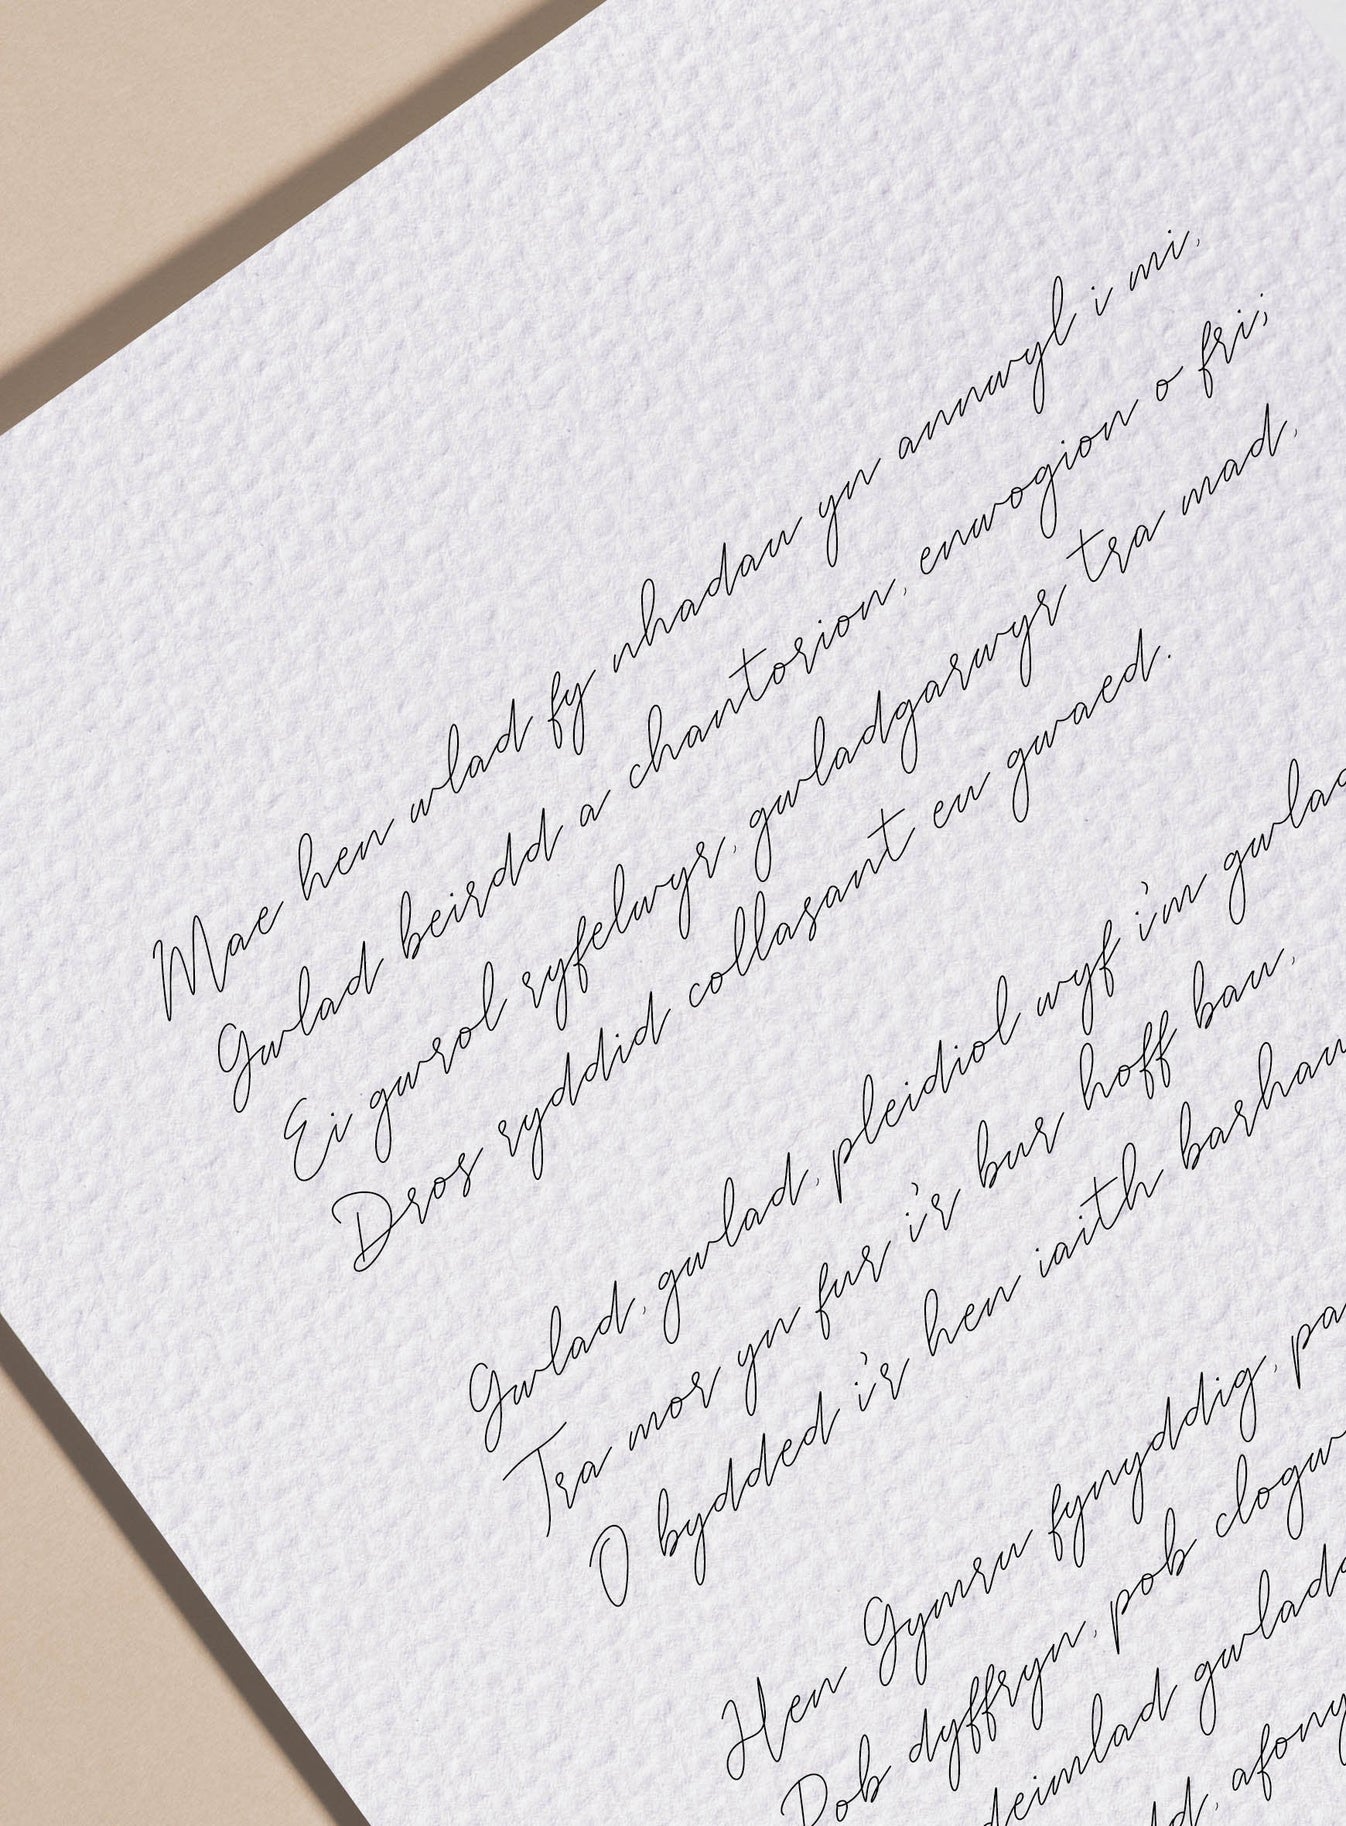 Mae hen wlad fy nhadau yn annwyl i mi,
Gwlad beirdd a chantorion, enwogion o fri;
Ei gwrol ryfelwyr, gwladgarwyr tra mad,
Dros ryddid collasant eu gwaed.
Gwlad, gwlad, pleidiol wyf i'm gwlad
Tra mor yn fur i'r bur hoff bau,
O bydded i'r hen iaith barhau
Hen Gymru fynyddig,
Pob dyffryn, pob
deimlad